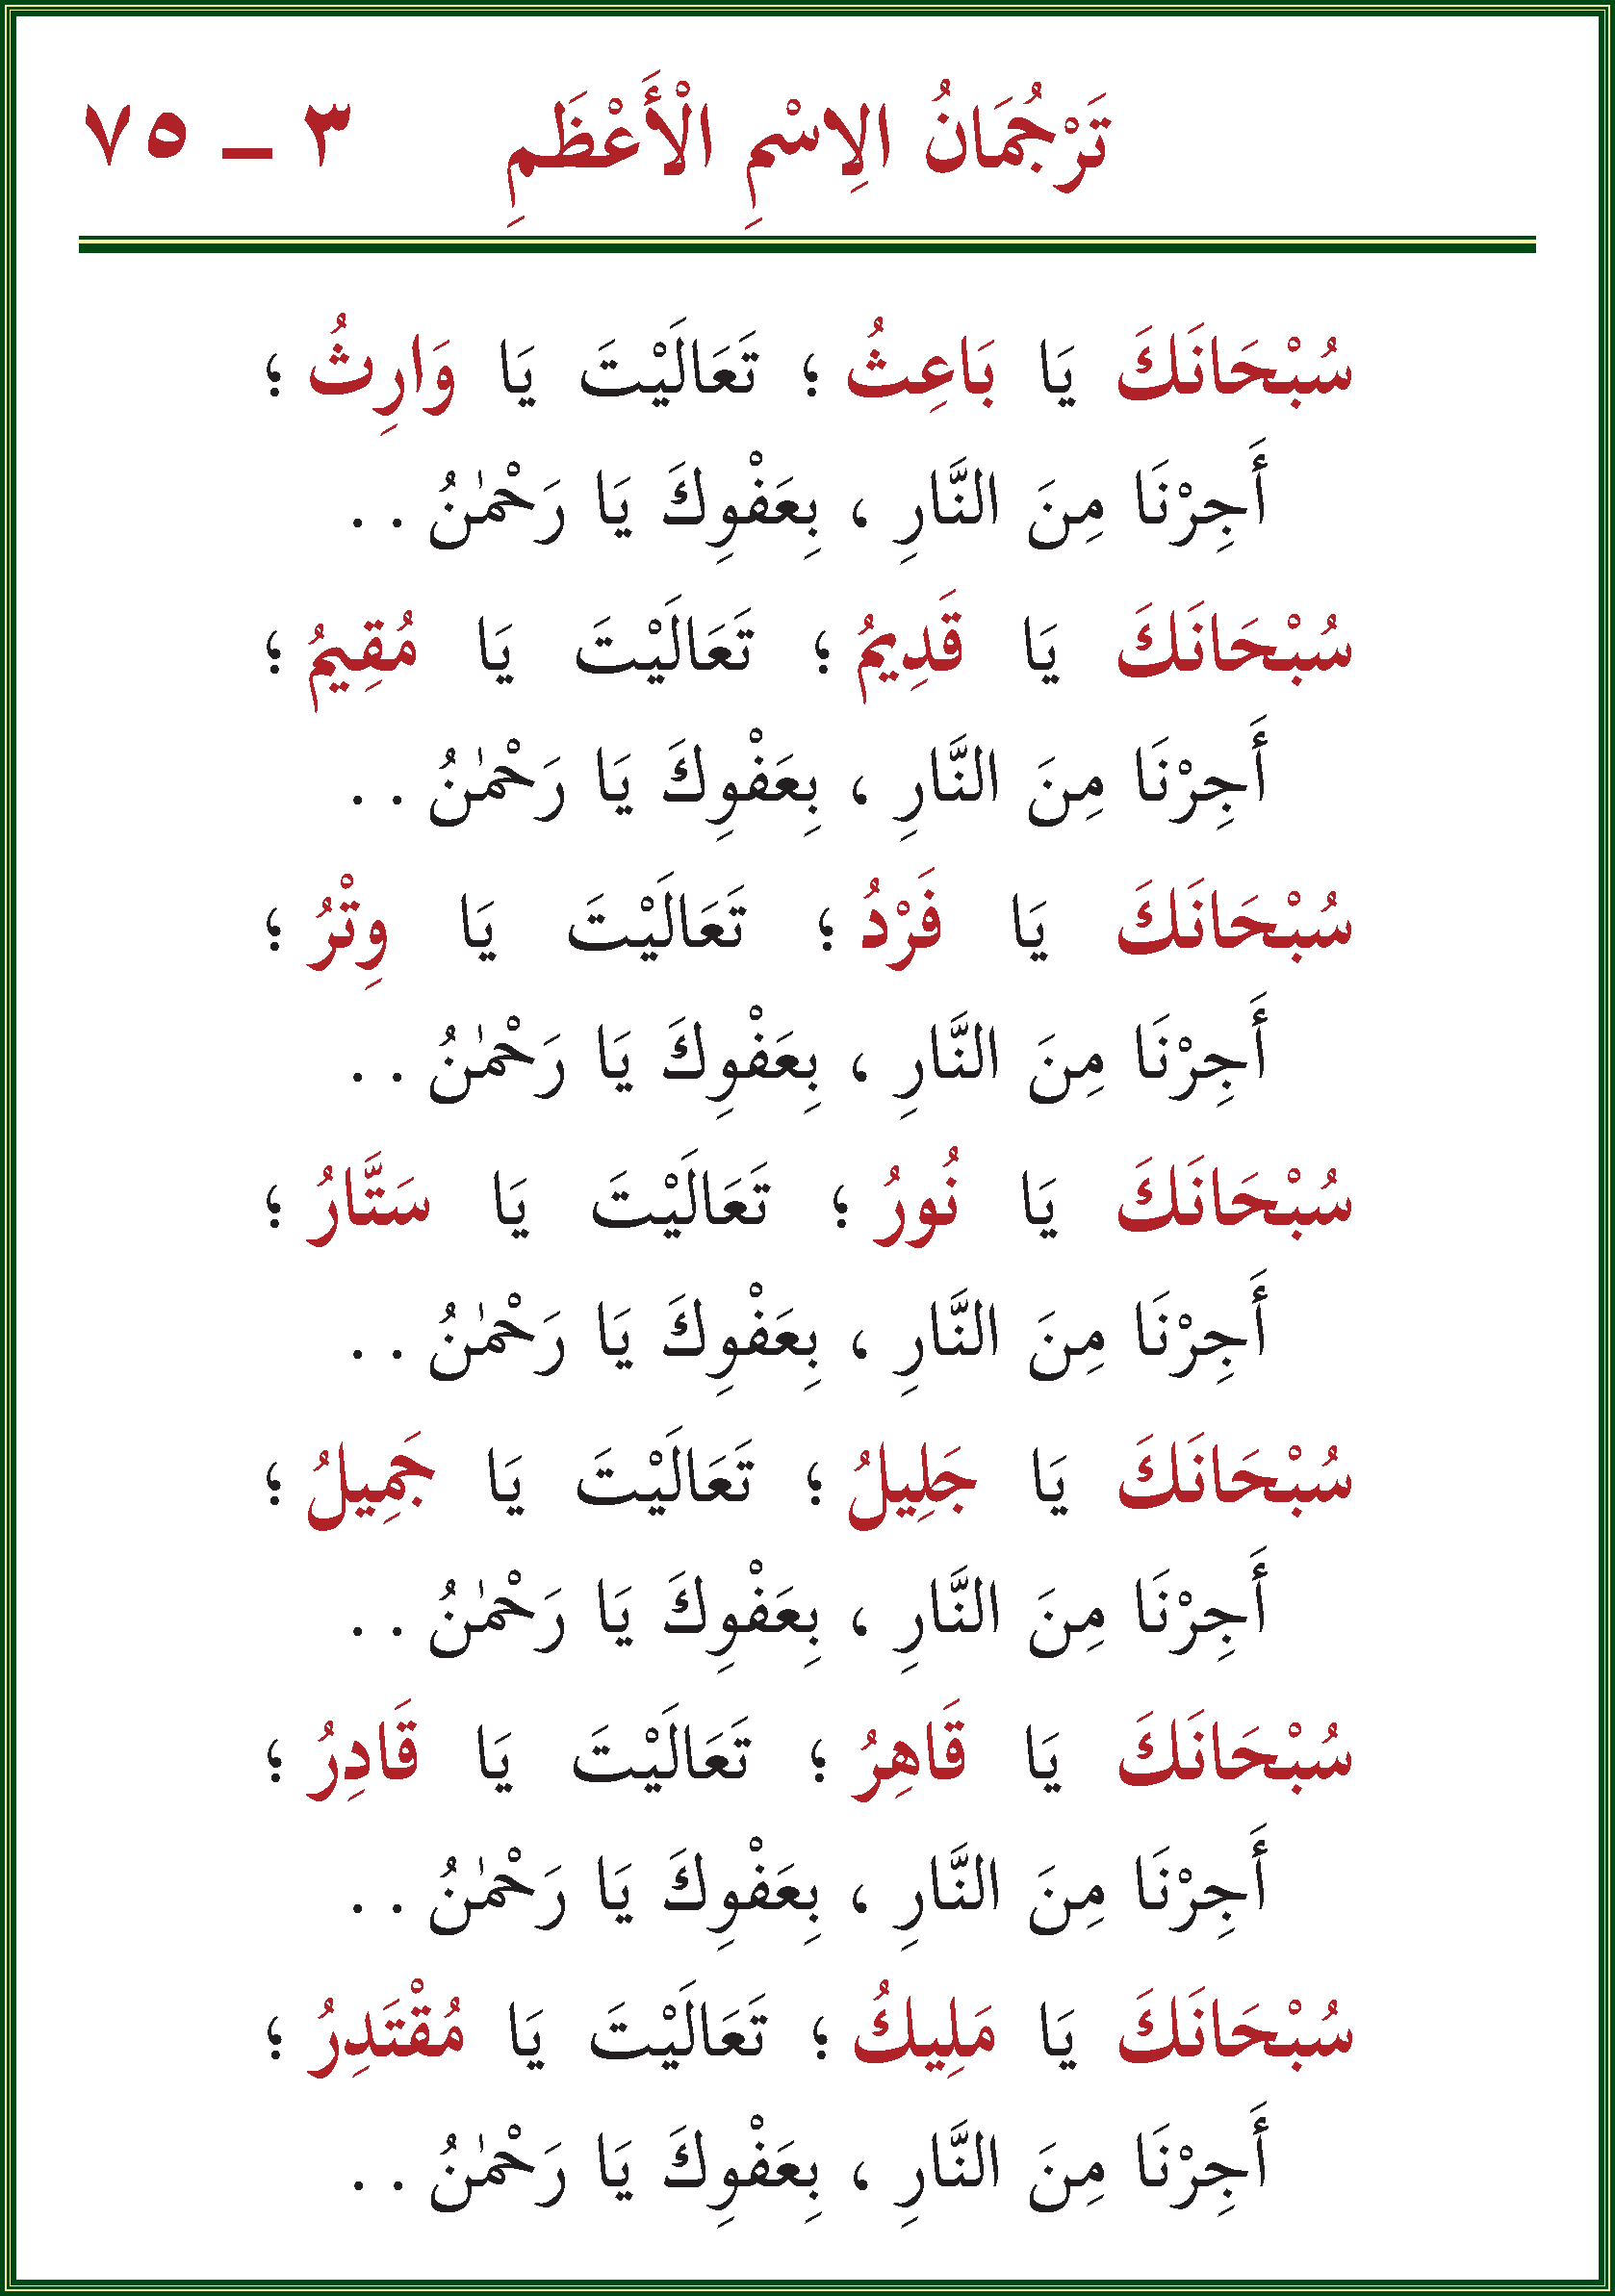 تَرْجُمَانُ الِاسْمِ الْأَعْظَمِ ٣ ـ ٧٥
سُبْحَانَكَ يَا بَاعِثُ ؛ تَعَالَيْتَ يَا وَارِثُ ؛
أَجِرْنَا مِنَ النَّارِ ، بِعَفْوِكَ يَا رَحْمٰنُ . .
سُبْحَانَكَ يَا قَدِيمُ ؛ تَعَالَيْتَ يَا مُقِيمُ ؛
أَجِرْنَا مِنَ النَّارِ ، بِعَفْوِكَ يَا رَحْمٰنُ . .
سُبْحَانَكَ يَا فَرْدُ ؛ تَعَالَيْتَ يَا وِتْرُ ؛
أَجِرْنَا مِنَ النَّارِ ، بِعَفْوِكَ يَا رَحْمٰنُ . .
سُبْحَانَكَ يَا نُورُ ؛ تَعَالَيْتَ يَا سَتَّارُ ؛
أَجِرْنَا مِنَ النَّارِ ، بِعَفْوِكَ يَا رَحْمٰنُ . .
سُبْحَانَكَ يَا جَلِيلُ ؛ تَعَالَيْتَ يَا جَمِيلُ ؛
أَجِرْنَا مِنَ النَّارِ ، بِعَفْوِكَ يَا رَحْمٰنُ . .
سُبْحَانَكَ يَا قَاهِرُ ؛ تَعَالَيْتَ يَا قَادِرُ ؛
أَجِرْنَا مِنَ النَّارِ ، بِعَفْوِكَ يَا رَحْمٰنُ . .
سُبْحَانَكَ يَا مَلِيكُ ؛ تَعَالَيْتَ يَا مُقْتَدِرُ ؛
أَجِرْنَا مِنَ النَّارِ ، بِعَفْوِكَ يَا رَحْمٰنُ . .